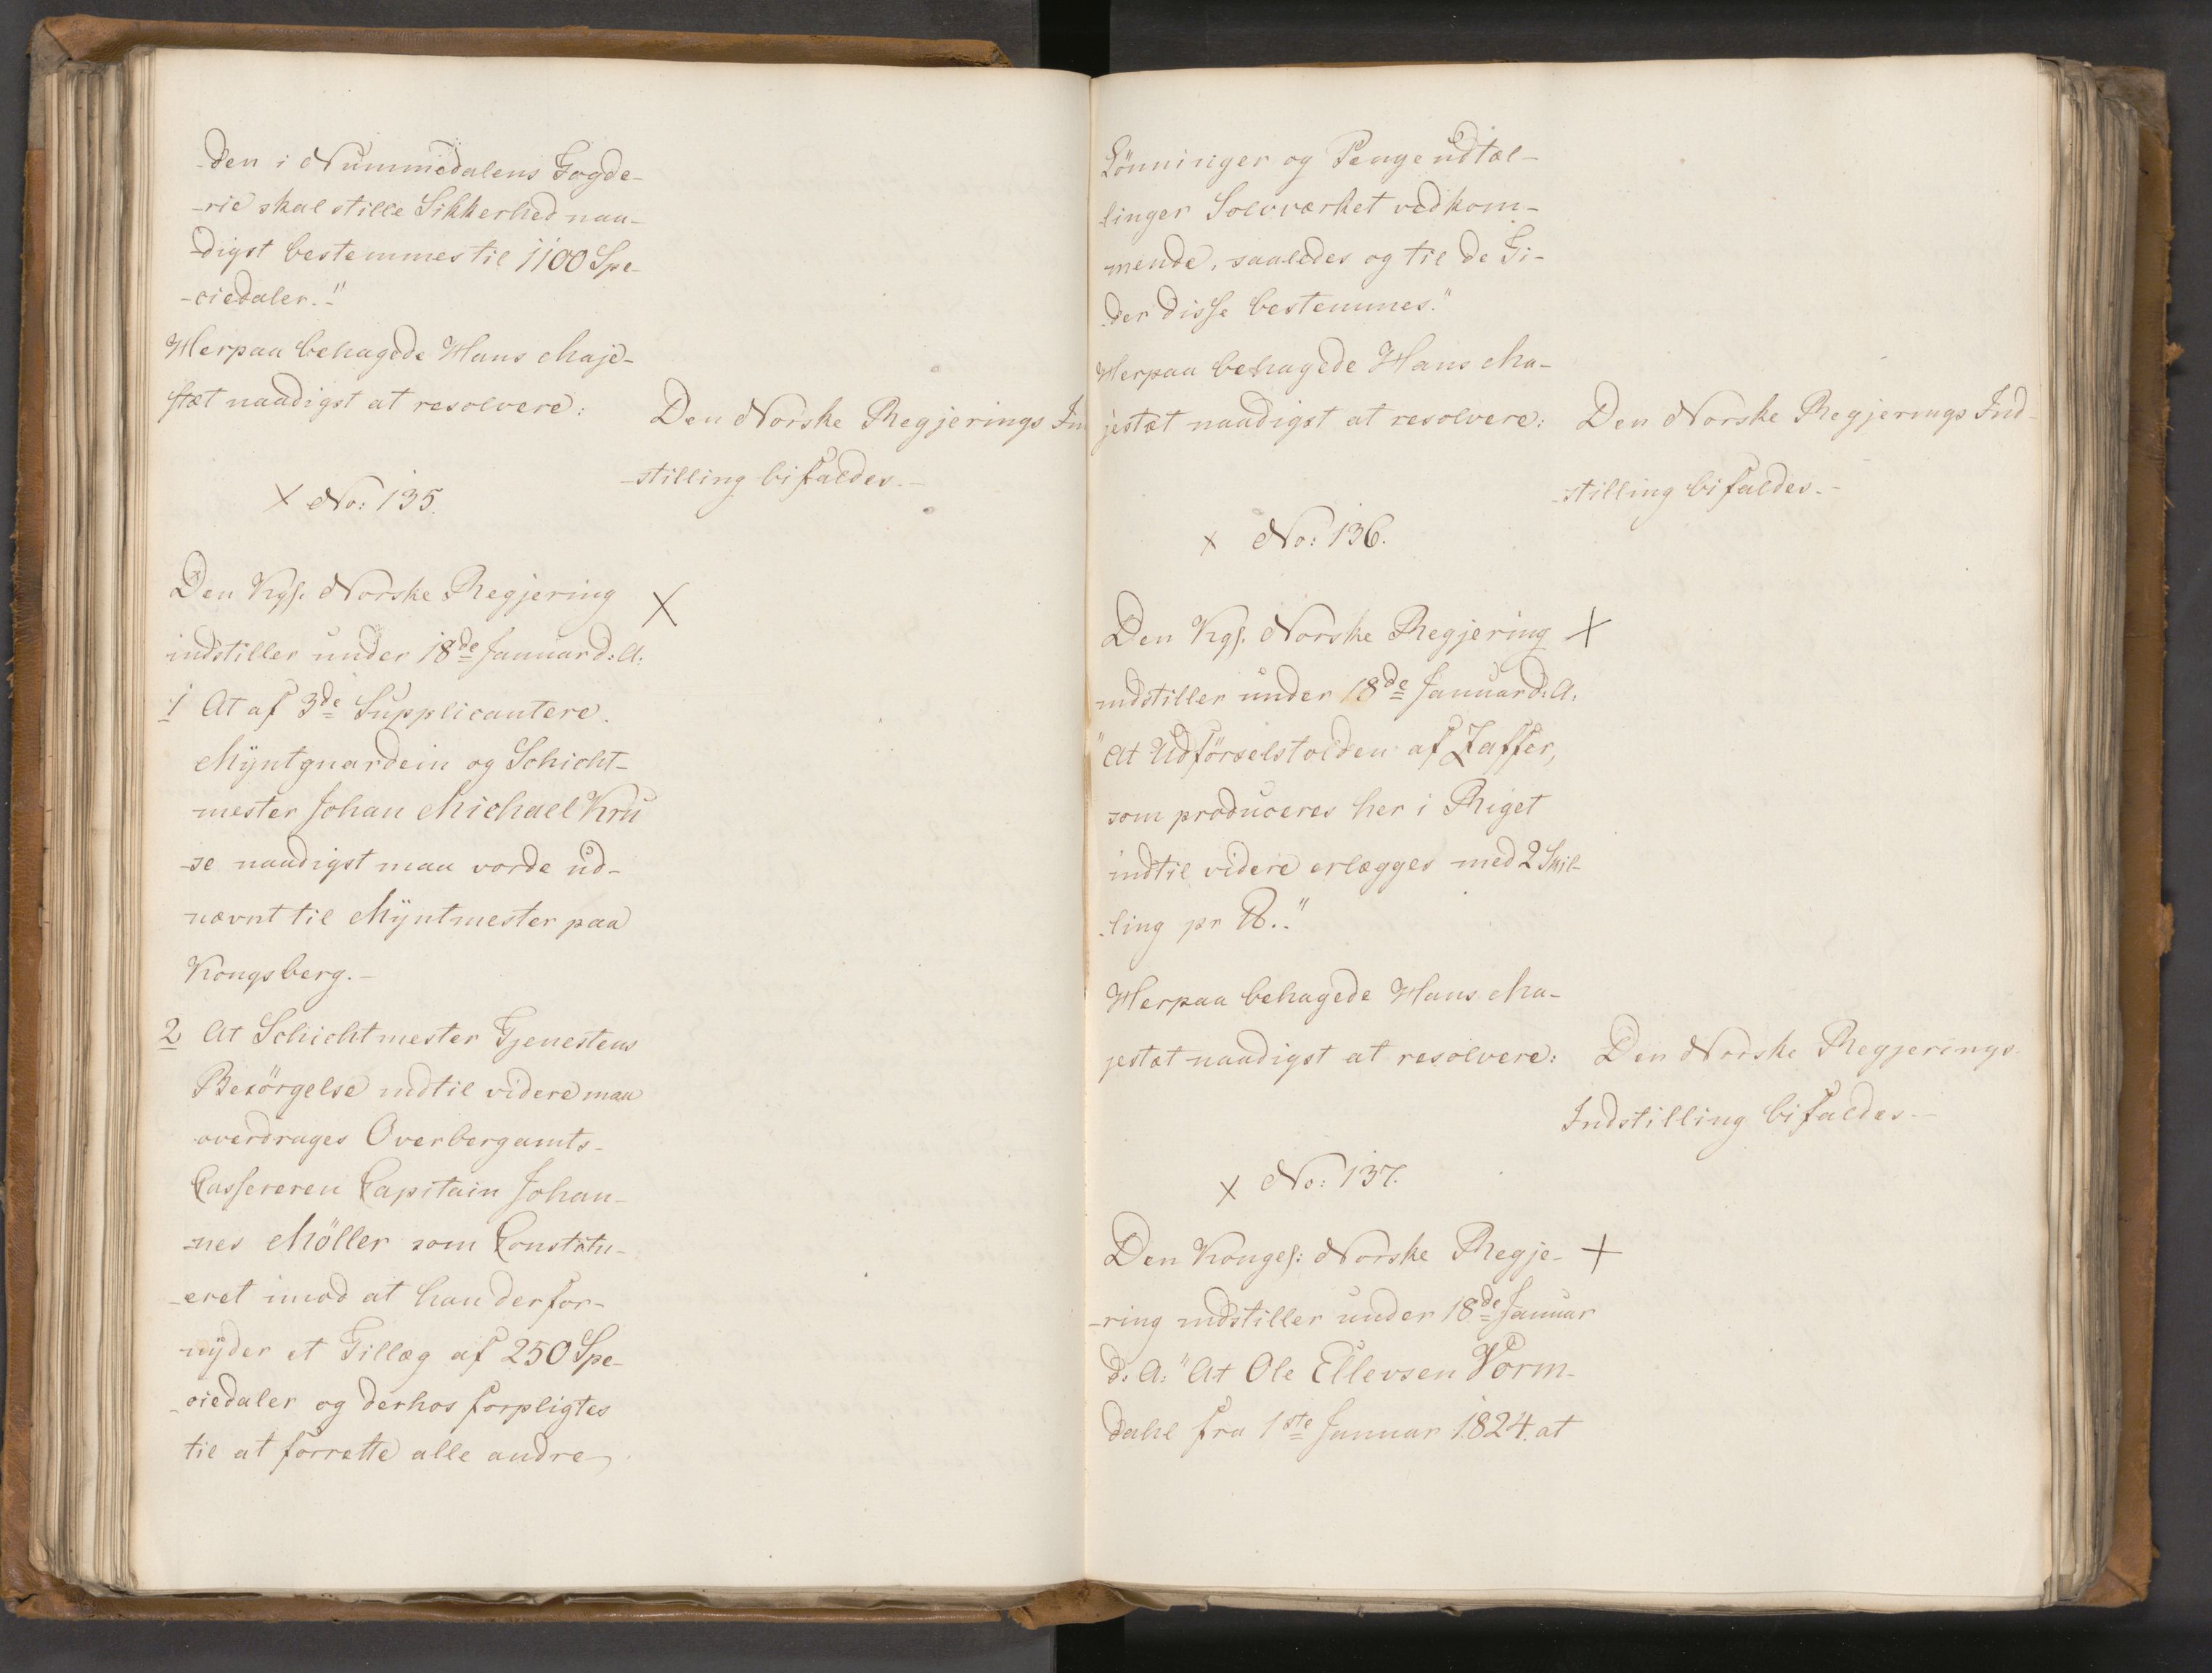 -den i Nummedalens Fogde-
-rie skal stille Sikkerhed naa-
-digst bestemmes til 1100 Spe-
-ciedaler."
Herpaa behagede Hans Maje-
stæt naadigst at resolvere:
Den Norske Regjerings In
-stilling bifaldes.-
X No: 135.
Den Kgl. Norske Regjering X
indstiller under 18de Januar d: A:
1 At af 3de Supplicantere.
Myntguardein og Schicht-
mester Johan Michael Kru
-se naadigst maa vorde ud-
nævnt til Myntmester paa
Kongsberg.-
2 At Schichtmester Tjenestens
Besörgelse indtil videre maa
overdrages Overbergamts-
Cassereren Capitain Johan-
-nes Möller som Constitu-
-eret imod at han derfor-
nyder et Tillæg af 250 Spe-
-ciedaler og derhos forpligtes
til at forrette alle andre
Lönninger og Penge udtæl-
linger Solvværket vedkom-
mende, saaledes og til de Ti-
der disse bestemmes."
Herpaa behagede Hans Ma-
jestæt naadigst at resolvere:
Den Norske Regjerings Ind-
-stilling bifaldes.-
x No: 136.
Den Kgl. Norske Regjering X
indstiller under 18de Januar d: A:
"At Udförselstolden af Zaffer,
som produceres her i Riget
indtil videre erlægges med 2 Skil-
ling pr ℔."
Herpaa behagede Hans Ma-
jestæt naadigst at resolvere:
Den Norske Regjerings
Indstilling bifaldes-
x No: 137.
Den Kongel: Norske Regje- +
-ring indstiller under 18de Januar
d: A: "At Ole Ellevsen Vorm-
dahl fra 1ste Januar 1824. at